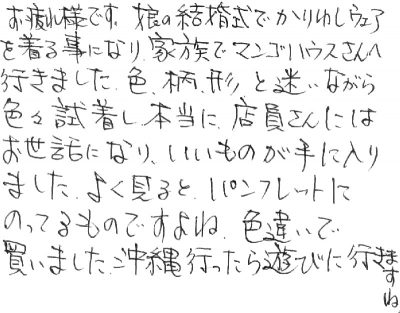 お疲れ様です。娘の結婚式でかりゆしウェア
を着る事になり、家族でマンゴハウスさんへ
行きました。色、柄、形、と迷いながら
色々試着し、本当に、店員さんには
お世話になり、いいものが手に入り
ました。よく見ると、パンフレットに
のってるものですよね。色違いで
買いました。沖縄行ったら遊びに行きますね。